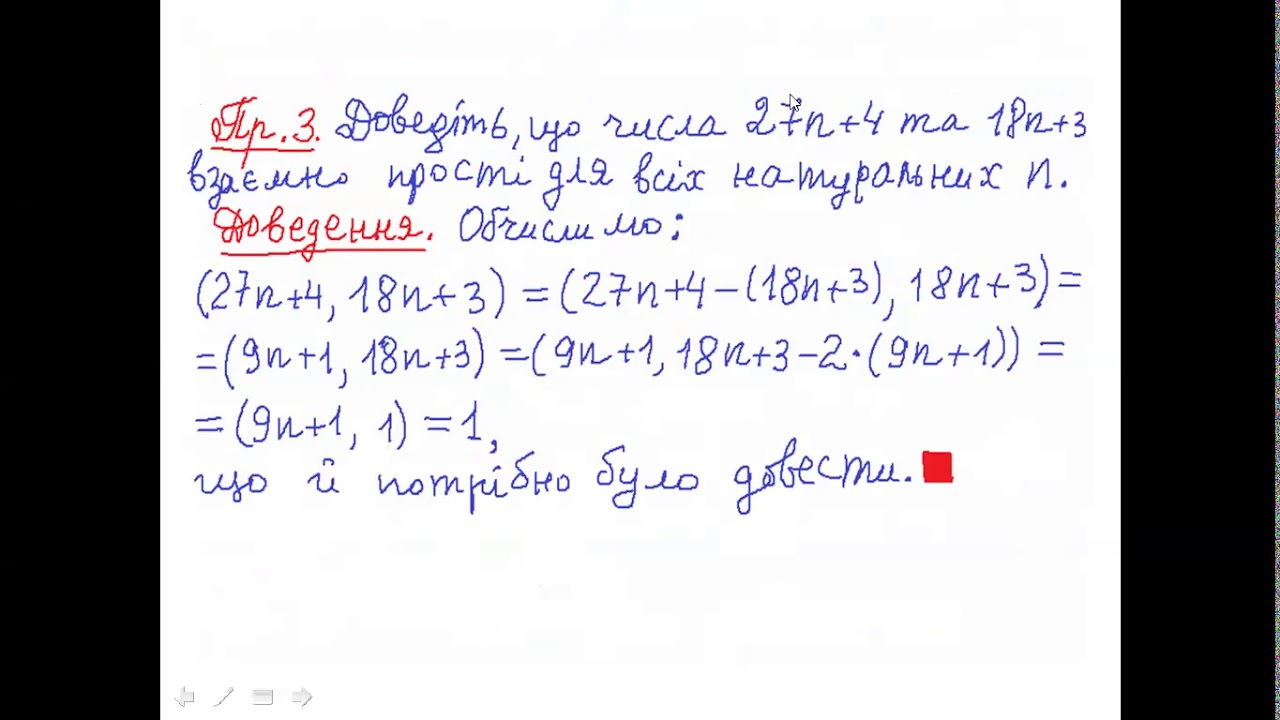 Пр. 3. Доведіть, що числа 27n+4 та 18n+3
взаємно прості для всіх натуральних n.
Доведення. Обчислимо:
(27n+4, 18n+3) = (27n+4-(18n+3), 18n+3) =
= (9n+1, 18n+3) = (9n+1, 18n+3-2·(9n+1)) =
= (9n+1, 1) = 1,
що й потрібно було довести.